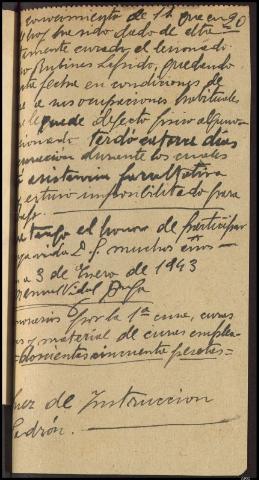 conocimiento de V. que en 90
ha sido dado de alta
mente curado, el lesionado
Rubines Lapido, quedando
esta fecha en condiciones de
a sus ocupaciones habituales
le quede defecto fisico alguno
sionado tardó catorce dias
curacion durante los cuales
asistencia facultativa
estuvo imposibilitado para
bajo.
tengo el honor de participar
guarde V. S. muchos años —
a 3 de Enero de 1943
Manuel Vidal
norarios por la 1ª cura, curas
y material de curas emplea-
= doscientas cincuenta pesetas =
Juez de Instruccion
Padrón. —